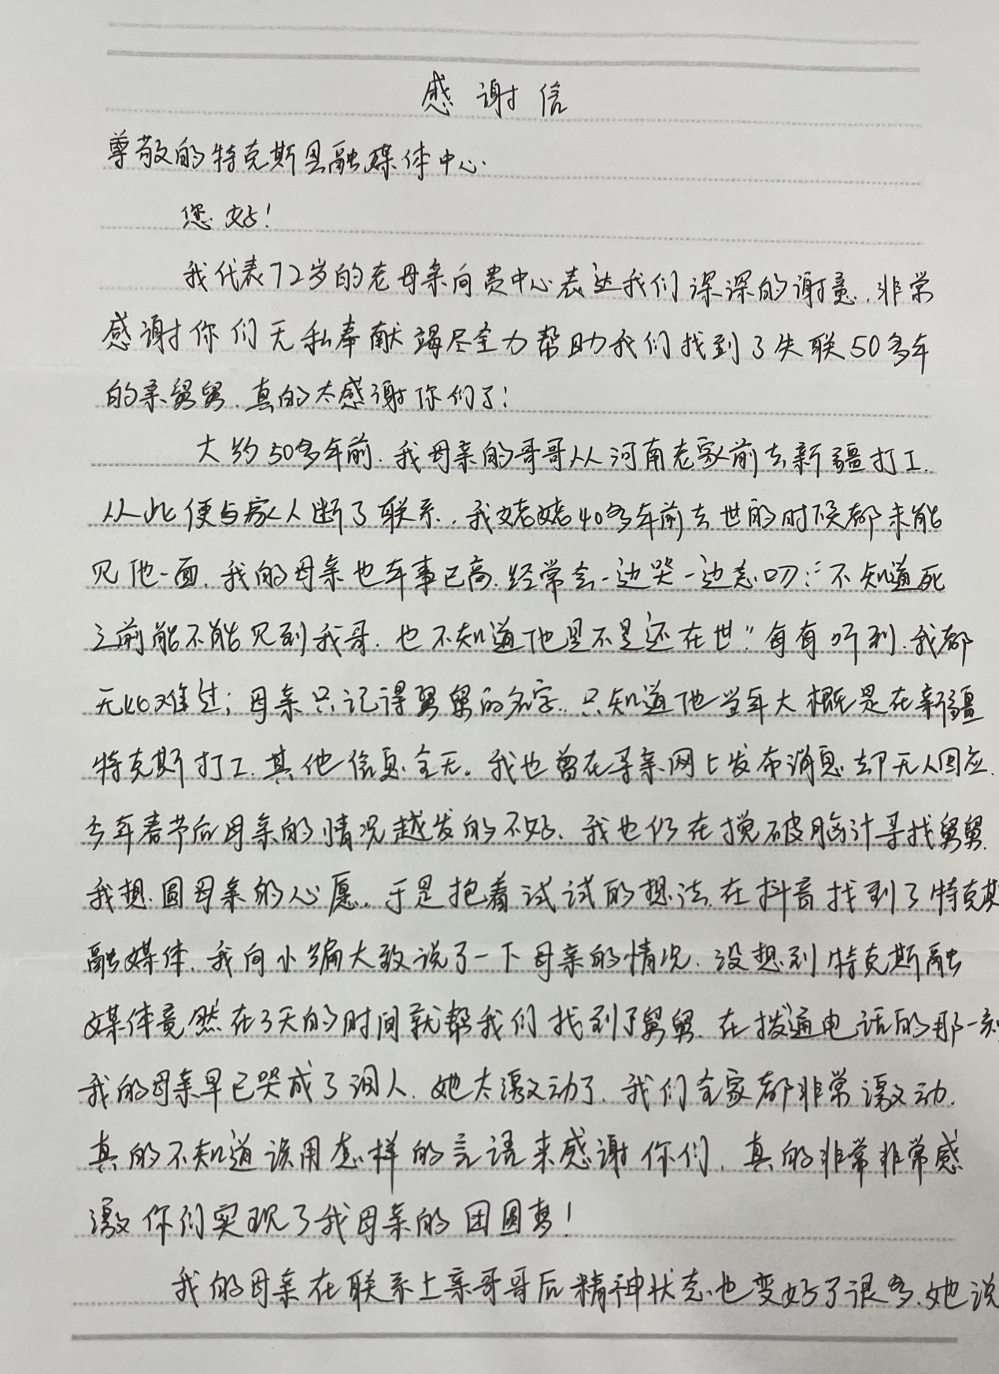 感谢信
尊敬的特克斯县融媒体中心
您好!
我代表72岁的老母亲向贵中心表达我们深深的谢意.非常
感谢你们无私奉献竭尽全力帮助我们找到了失联50多年
的亲舅舅.真的太感谢你们了!
大约50多年前.我母亲的哥哥从河南老家前去新疆打工.
从此便与家人断了联系.我姥姥40多年前去世的时候都未能
见他一面.我的母亲也年事已高.经常会一边哭一边念叨:“不知道死
之前能不能见到我哥.也不知道他是不是还在世”每有听到.我都
无比难过;母亲只记得舅舅的名字.只知道他当年大概是在新疆
特克斯打工.其他信息全无。我也曾在寻亲网上发布消息却无人回应.
今年春节后母亲的情况越发的不好.我也仍在搅破脑汁寻找舅舅.
我想圆母亲的心愿.于是抱着试试的想法.在抖音找到了特克斯
融媒体.我向小编大致说了一下母亲的情况.没想到特克斯融
媒体竟然在3天的时间就帮我们找到了舅舅.在拨通电话的那一刻
我的母亲早已哭成了泪人.她太激动了.我们全家都非常激动.
真的不知道该用怎样的言语来感谢你们.真的非常非常感
激你们实现了我母亲的团圆梦!
我的母亲在联系上亲哥哥后精神状态也变好了很多.她说